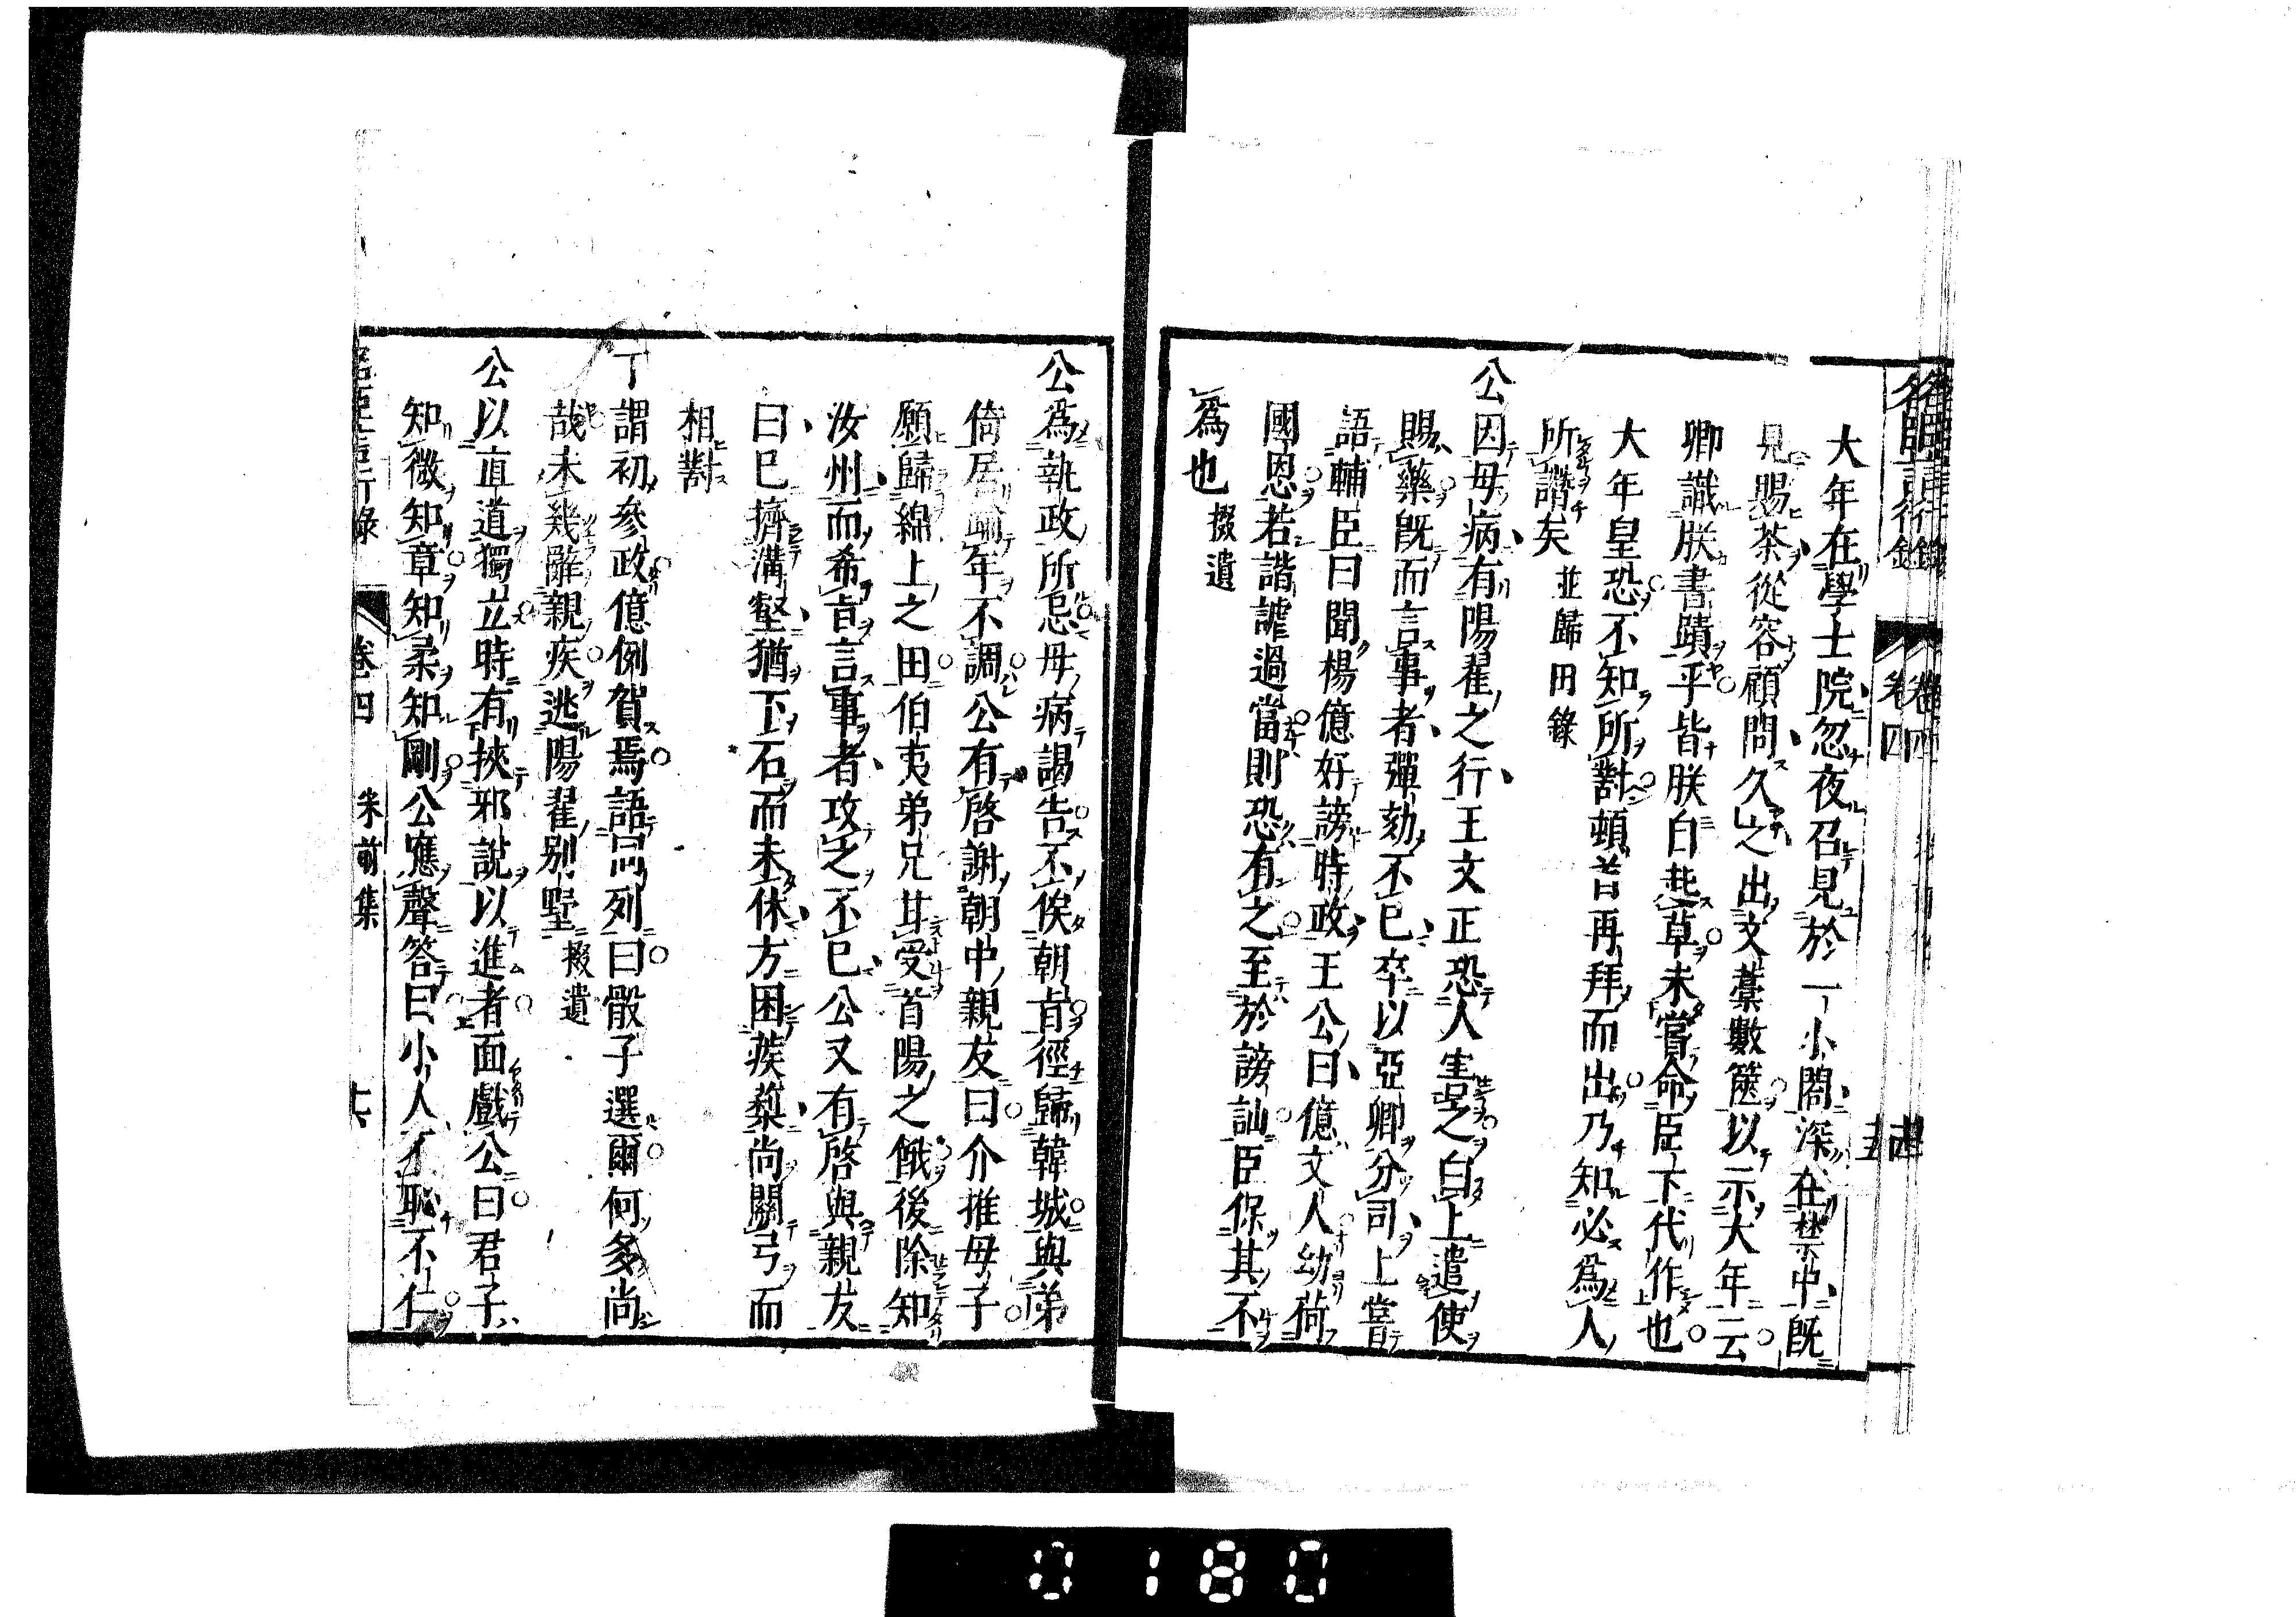 名臣言行錄 卷四
大年在學士院忽夜召見於一小閤深在禁中旣
見賜茶從容顧問久之出文藁數篋以示大年云
卿識朕書蹟乎皆朕自起草未嘗命臣下代作也
大年皇恐不知所對頓首再拜而出乃知必爲人
所譖矣 並歸田錄
公因母病有陽翟之行王文正恐人害之白上遣使
賜藥旣而言事者彈劾不已卒以亞卿分司上嘗
語輔臣曰聞楊億好謗時政王公曰億文人幼荷
國恩若諧謔過當則恐有之至於謗訕臣保其不
爲也 掇遺
公爲執政所忌母病謁告不俟朝旨徑歸韓城與弟
倚居踰年不調公有啓謝朝中親友曰介推母子
願歸綿上之田伯夷弟兄甘受首陽之餓後除知
汝州而希旨言事者攻之不已公又有啓與親友
曰已擠溝壑猶下石而未休方困蒺蔾尚關弓而
相對
丁謂初參政億例賀焉語同列曰骰子選爾何多尚
哉未幾辭親疾逃陽翟別墅 掇遺
公以直道獨立時有挾邪說以進者面戲公曰君子
知微知章知柔知剛公應聲答曰小人不恥不仁
名臣言行錄 卷四 朱前集 十六
0180